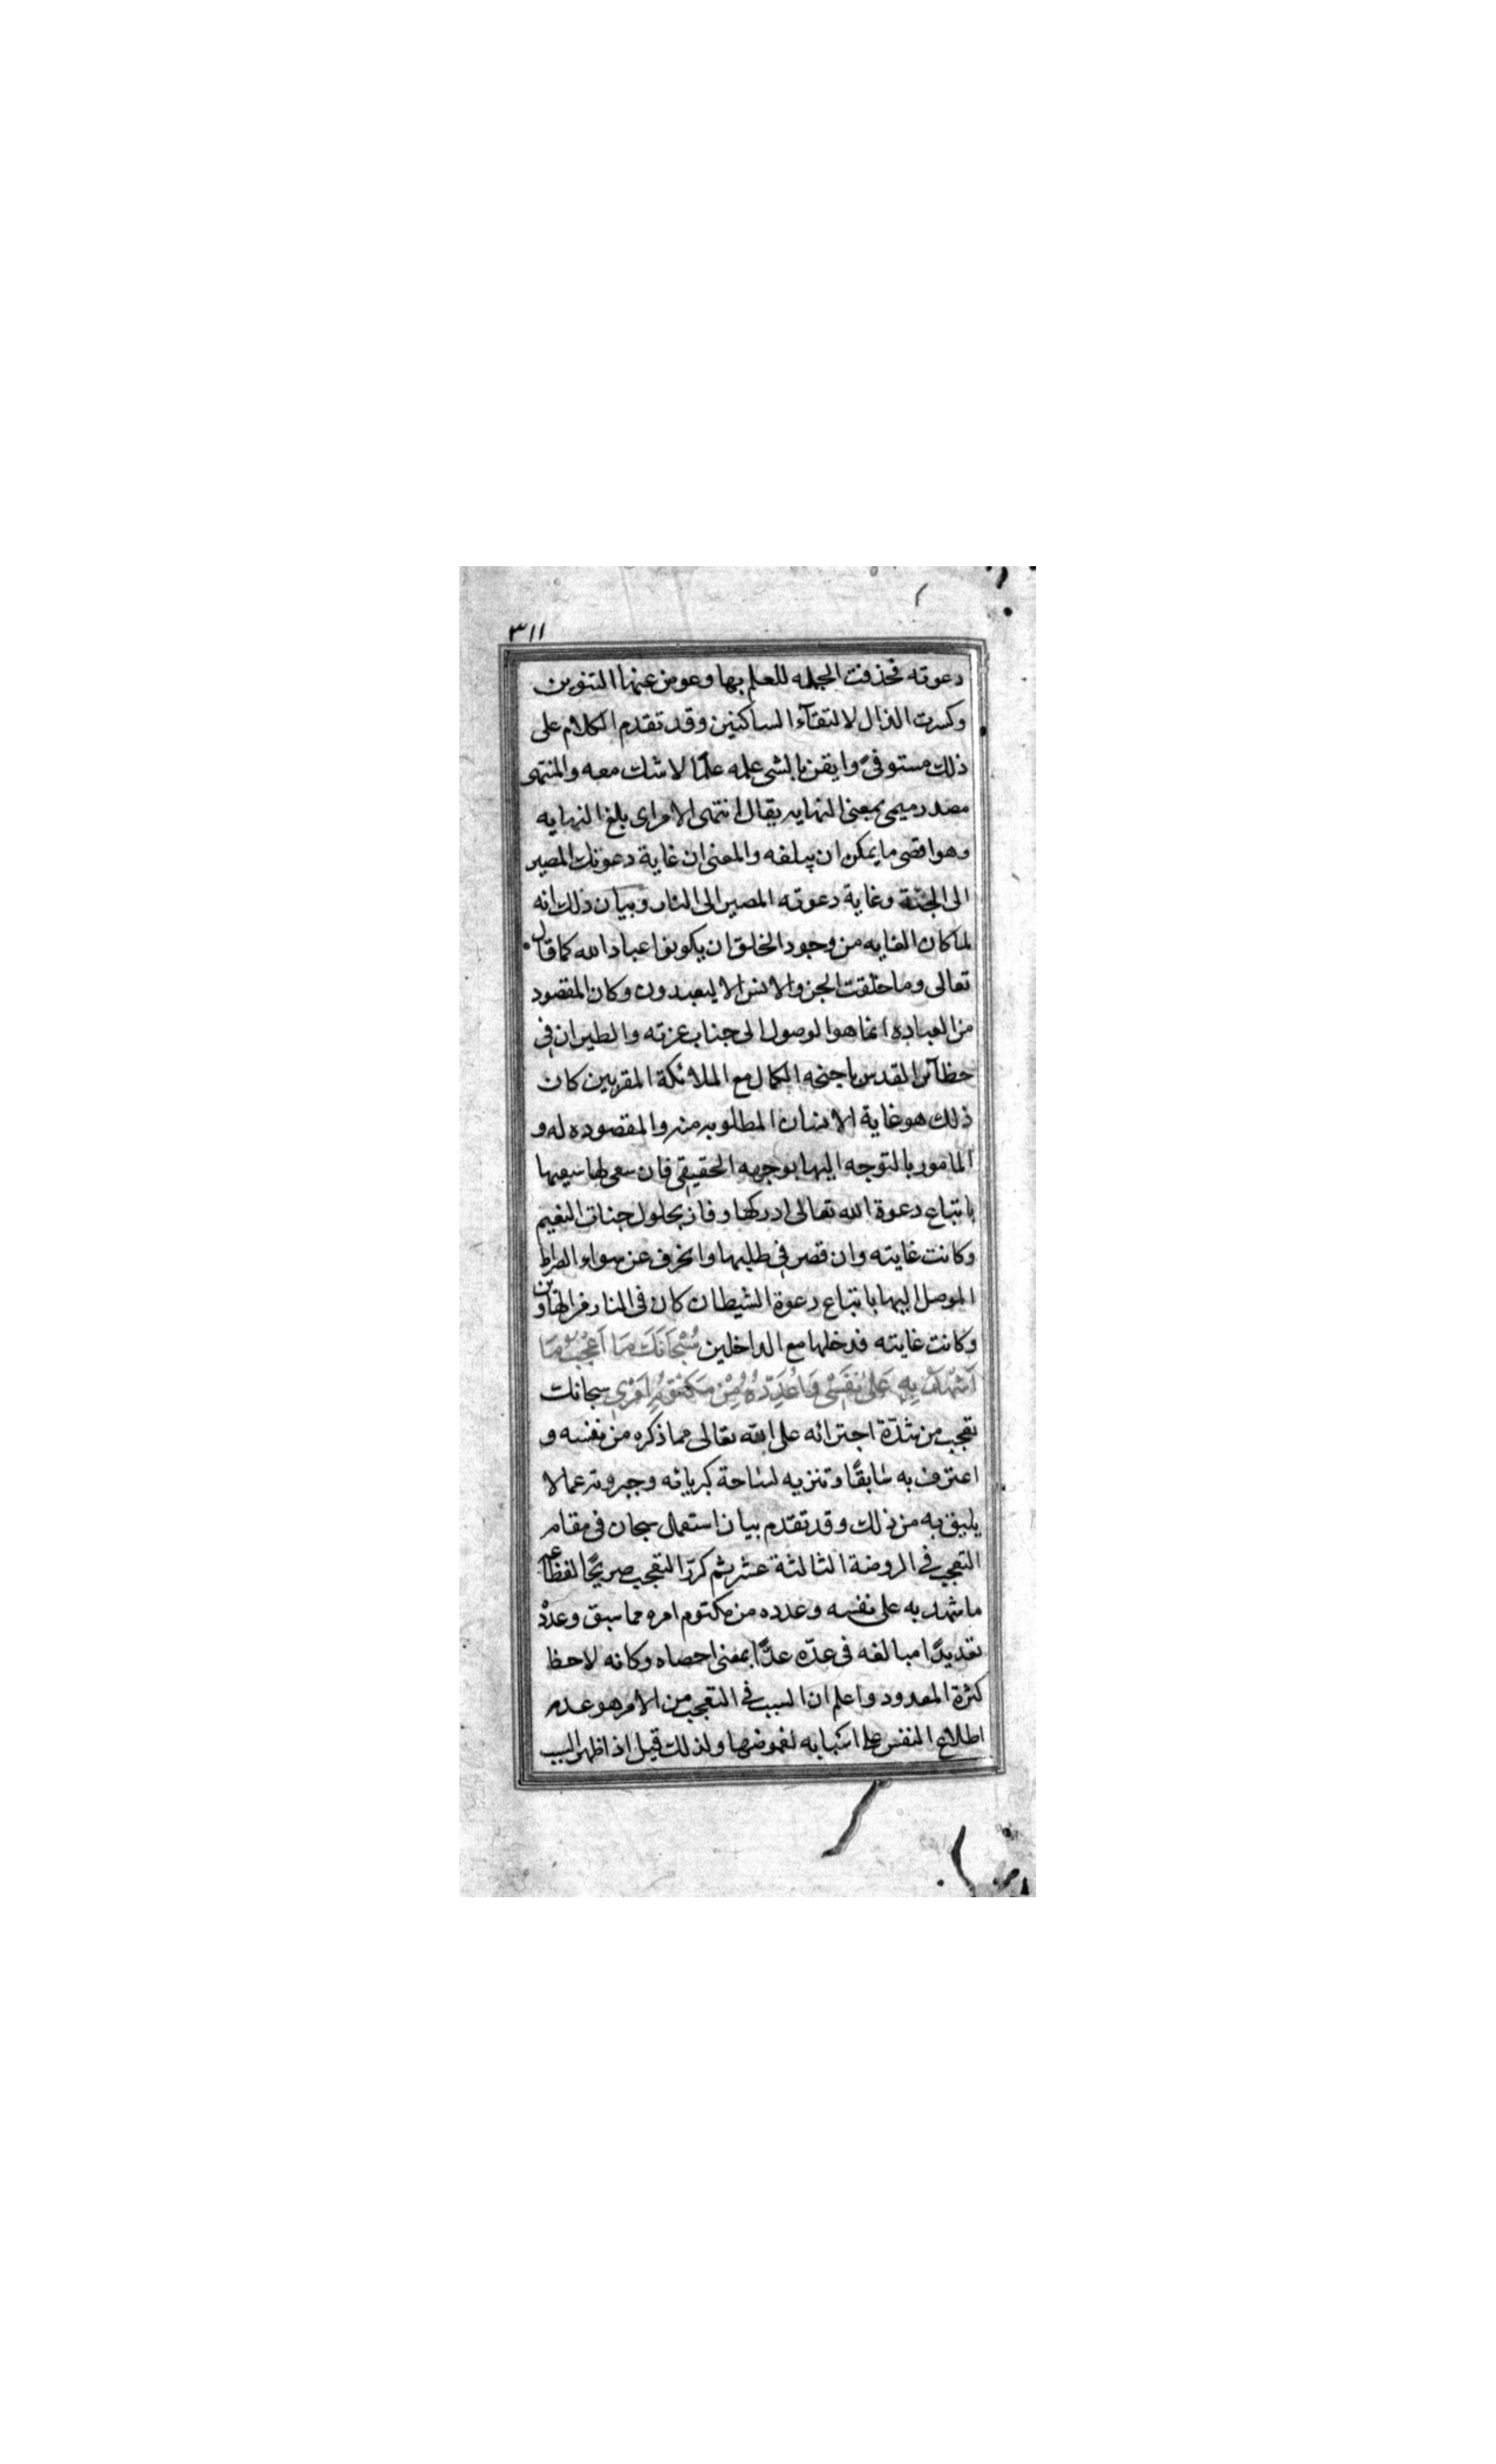 ٣١١
دعوته فحذفت الجمله للعلم بها وعوض عنها التنوين
وكسرت الذال لالتقآء الساكنين وقد تقدم الكلام على
ذلك مستوفىً وايقن بالشى علمه علمًا لا شك معه والمنتهى
مصدر ميمى بمعنى النهايه يقال انتهى الامر اى بلغ النهايه
وهو اقصى ما يمكن ان يبلغه والمعنى ان غاية دعوتك المصير
الى الجنّة وغاية دعوته المصير الى النار وبيان ذلك انه
لما كان الغايه من وجود الخلق ان يكونوا عباد الله كما قال
تعالى وما خلقت الجن والانس الا ليعبدون وكان المقصود
من العباده انما هو الوصول الى جناب عزته والطيران فى
حظآئر القدس باجنحه الكمال مع الملائكة المقربين كان
ذلك هو غاية الانسان المطلوبه منه والمقصوده له و
المامور بالتوجه اليها بوجهه الحقيقى فان سعى لها سعيها
باتباع دعوة الله تعالى ادركها وفاز بحلول جنات النعيم
وكانت غايته وان قصر فى طلبها وانحرف عن سواء الصراط
الموصل اليها باتباع دعوة الشيطان كان فى النار من الهاوين
وكانت غايته فدخلها مع الداخلين سُبْحَانَكَ مَا اَعْجَبَ مَا
اَشْهَدُ بِهِ عَلىٰ نَفْسْى وَاُعَدِّدُهُ مِنْ مَكْتُومِ اَمْرْى سبحانك
تعجب من شدّة اجترائه على الله تعالى مما ذكره من نفسه و
اعترف به سابقًا وتنزيه لساحة كبريائه وجبروته عما لا
يليق به من ذلك وقد تقدّم بيان استعمال سبحان فى مقام
التعجب فى الروضة الثالثة عشر ثم كرّر التعجب صريحًا لفظًا عما
ما شهد به على نفسه وعدده من مكتوم امره مما سبق وعدّد
تعديدًا مبالغه فى عدّه عدًّا بمعنى احصاه وكانه لاحظ
كثرة المعدود واعلم ان السبب فى التعجب من الامر هو عدم
اطلاع النفس على اسبابه لغموضها ولذلك قيل اذا ظهر السبب